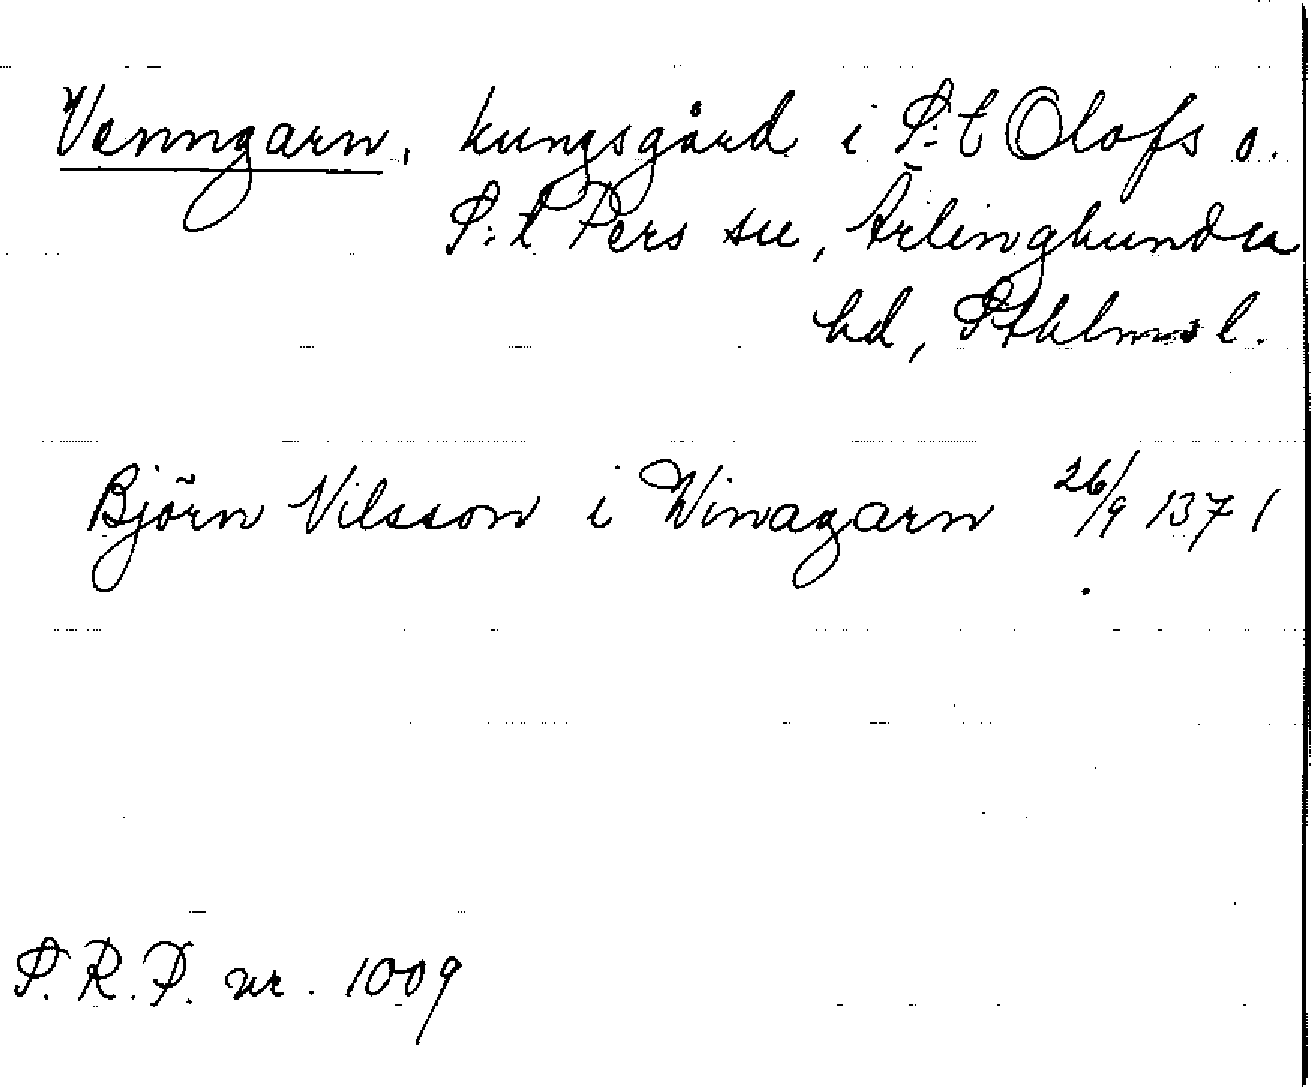 Venngarn, kungsgård i S:t Olofs o.
S:t Pers sn, Ärlinghundra
hd, Sthlms l.
Björn Nilsson i Winagarn 26/9 1371
S.R.P. nr. 1009